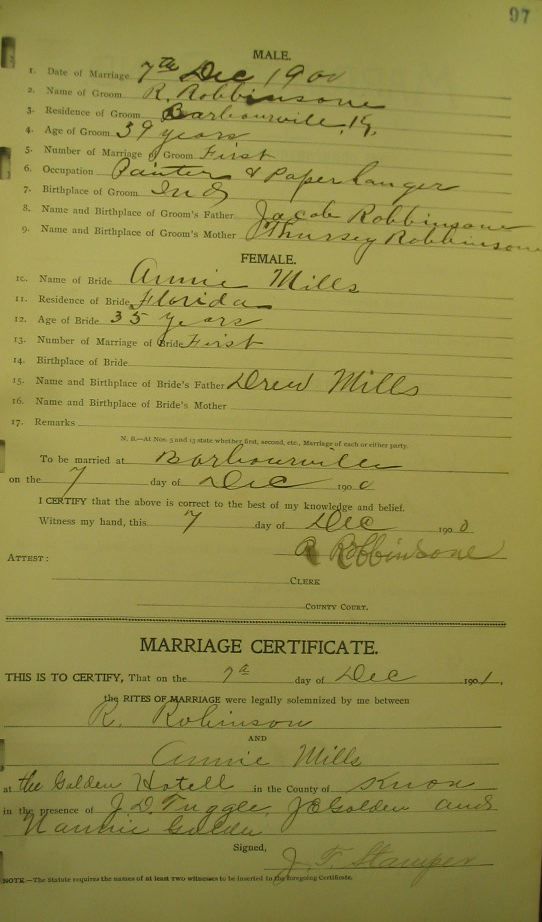 97
MALE.
1. Date of Marriage 7th Dec 1900
2. Name of Groom R. Robbinsone
3. Residence of Groom Barbourville, Ky.
4. Age of Groom 39 years
5. Number of Marriage of Groom First
6. Occupation Painter & Paperhanger
7. Birthplace of Groom Ind
8. Name and Birthplace of Groom's Father Jacob Robbinsone
9. Name and Birthplace of Groom's Mother Thursey Robbinsone
FEMALE.
10. Name of Bride Annie Mills
11. Residence of Bride Florida
12. Age of Bride 35 years
13. Number of Marriage of Bride First
14. Birthplace of Bride
15. Name and Birthplace of Bride's Father Drew Mills
16. Name and Birthplace of Bride's Mother
17. Remarks
N. B.—At Nos. 5 and 13 state whether first, second, etc., Marriage of each or either party.
To be married at Barbourville
on the 7 day of Dec 1900
I CERTIFY that the above is correct to the best of my knowledge and belief.
Witness my hand, this 7 day of Dec 1900
R Robbinsone
ATTEST:
CLERK
COUNTY COURT.
MARRIAGE CERTIFICATE.
THIS IS TO CERTIFY, That on the 7th day of Dec 1901,
the RITES OF MARRIAGE were legally solemnized by me between
R. Robinson
AND
Annie Mills
at the Golden Hotell in the County of Knox
in the presence of J. D. Tuggle, J C Golden and
Nannie Golden
Signed,
J. T. Stamper
NOTE.—The Statute requires the names of at least two witnesses to be inserted in the foregoing Certificate.